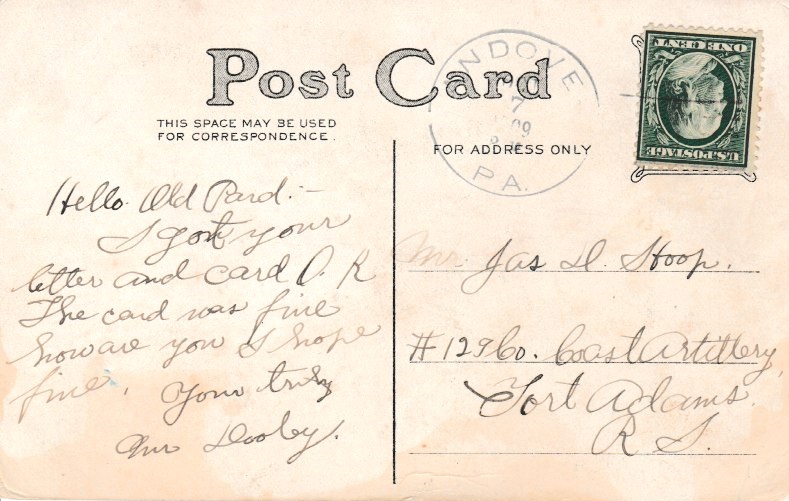 Post Card
THIS SPACE MAY BE USED
FOR CORRESPONDENCE.
FOR ADDRESS ONLY
NDOVE
7
09
PA.
ONE CENT
U.S. POSTAGE
Hello Old Pard:-
I got your
letter and card O.K
The card was fine
how are you I hope
fine. Your truly
Dooley.
Mr. Jas D. Stoop.
#129 Co. Coast Artillery,
Fort Adams.
R I.